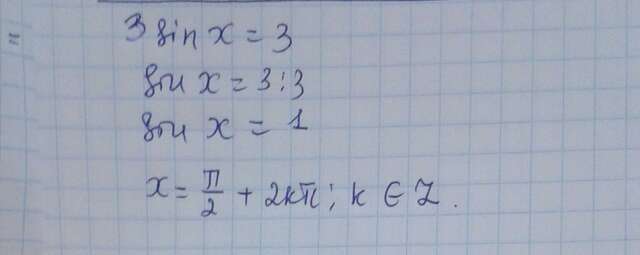 3 sin x = 3
sin x = 3 : 3
sin x = 1
x = π/2 + 2kπ ; k ∈ Z .